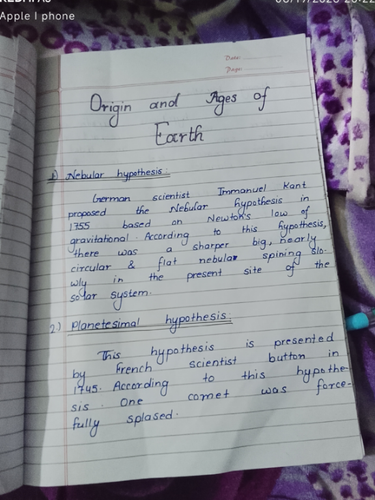 Apple I phone
Date:
Page:
Origin and Ages of
Earth
1) Nebular hypothesis :
German scientist Immanuel Kant
proposed the Nebular hypothesis in
1755 based on Newton's low of
gravitational. According to this hypothesis,
there was a sharper big, nearly
circular & flat nebular spining slo-
wly in the present site of the
solar system.
2.) Planetesimal hypothesis:
This hypothesis is presented
by French scientist button in
1745. According to this hypothe-
sis. One comet was force-
fully splased.